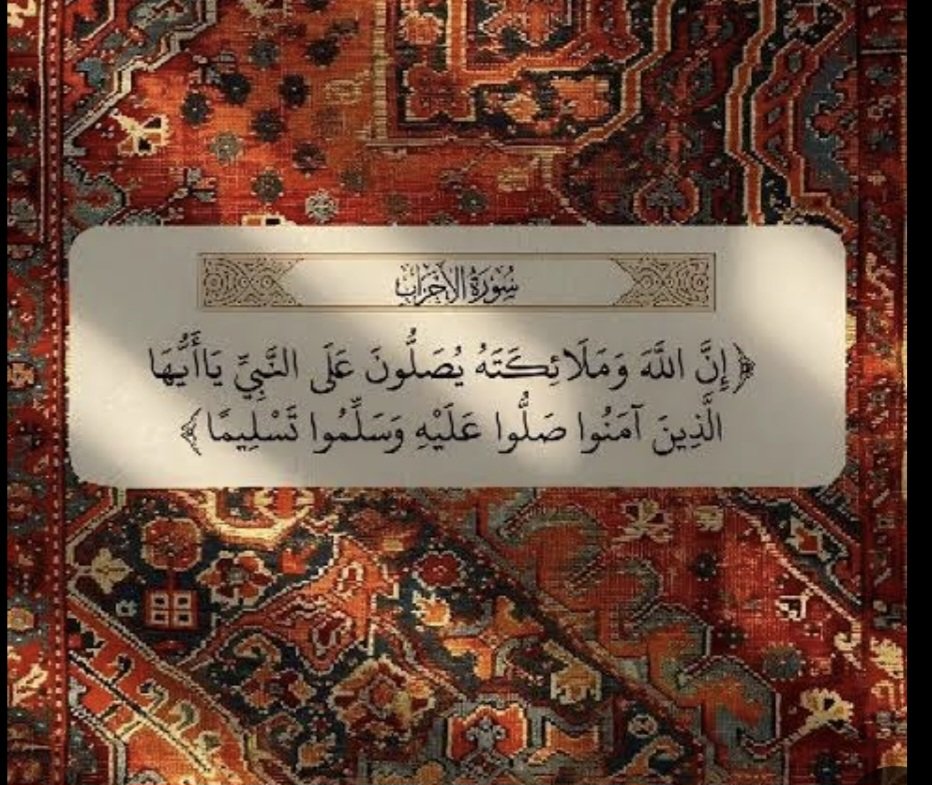 سُورَةُ الأَحْزَاب
﴿إِنَّ اللَّهَ وَمَلَائِكَتَهُ يُصَلُّونَ عَلَى النَّبِيِّ يَاأَيُّهَا
الَّذِينَ آمَنُوا صَلُّوا عَلَيْهِ وَسَلِّمُوا تَسْلِيمًا﴾